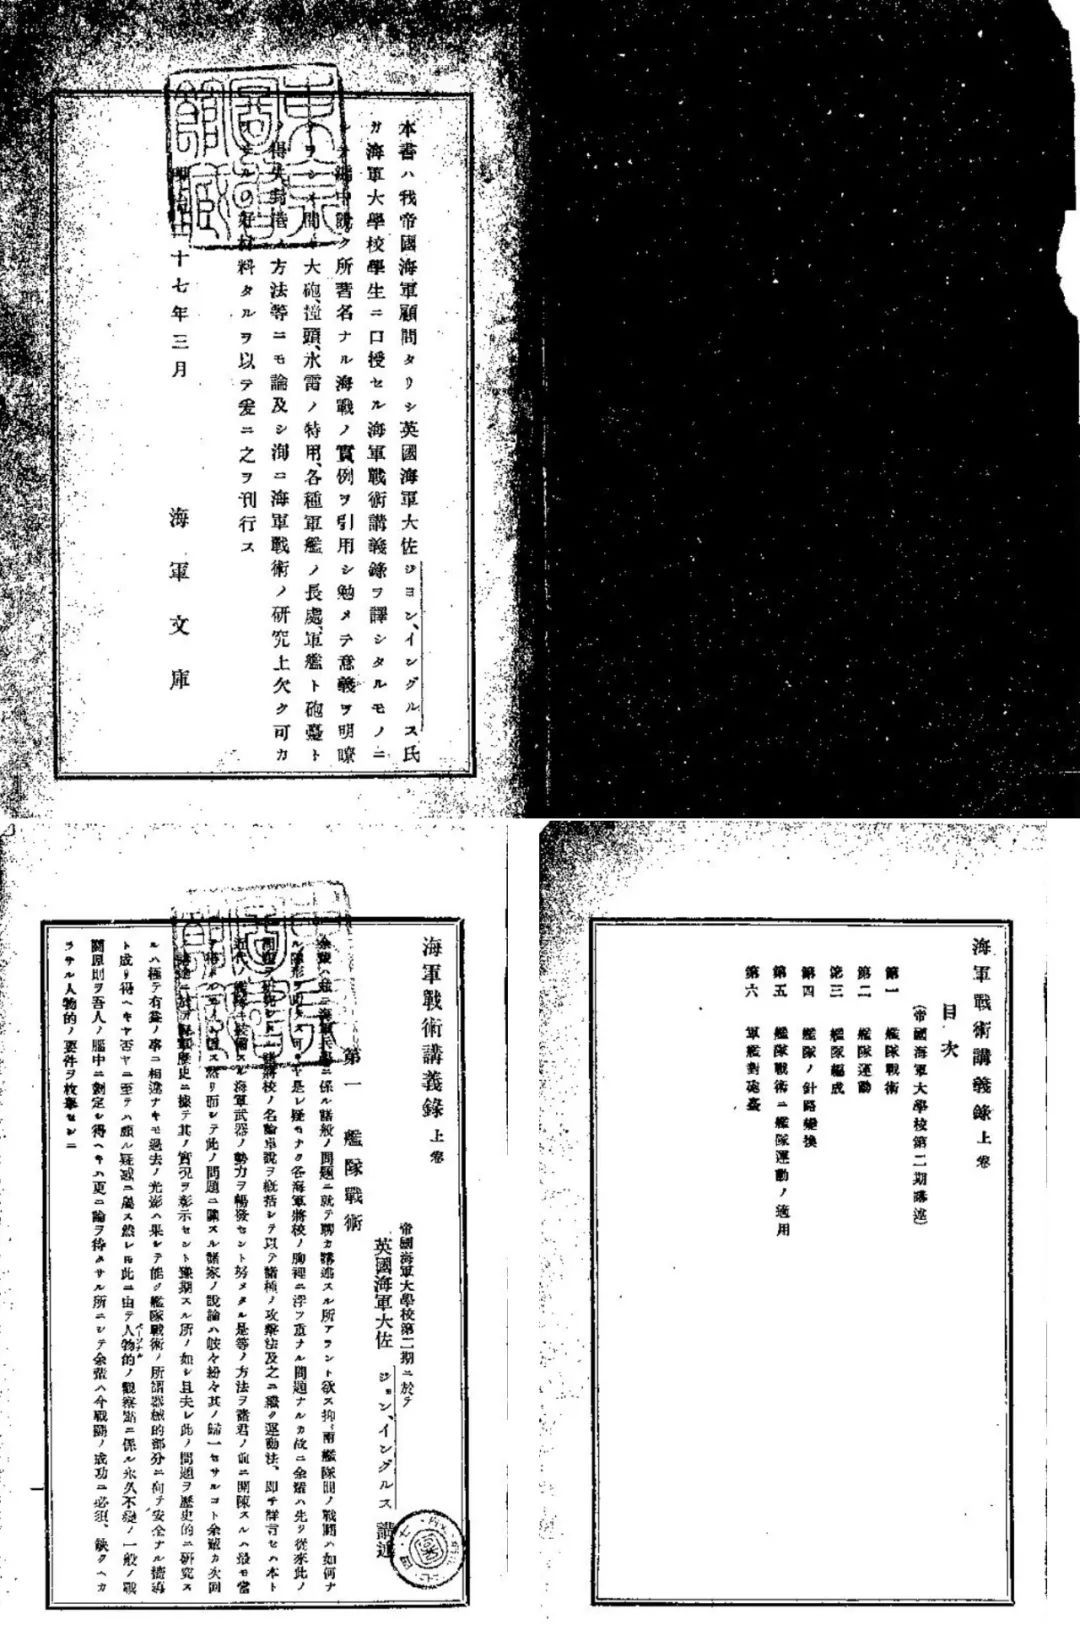 本書ハ我帝國海軍顧問タリシ英國海軍大佐ジヨン、イングルス氏
ガ海軍大學校學生ニ口授セル海軍戰術講義錄ヲ譯シタルモノニ
シテ 中說ク所著名ナル海戰ノ實例ヲ引用シ勉メテ意義ヲ明瞭
ヲシ 間 大砲、撞頭、水雷ノ特用、各種軍艦ノ長處、軍艦ト砲臺ト
得失 方法等ニモ論及シ洵ニ海軍戰術ノ研究上欠ク可カ
ルノ好材料タルヲ以テ爰ニ之ヲ刊行ス
二十七年三月
海軍文庫
海軍戰術講義錄 上卷
(帝國海軍大學校第二期講述)
目次
第一 艦隊戰術
第二 艦隊運動
第三 艦隊編成
第四 艦隊ノ針路變換
第五 艦隊戰術ニ艦隊運動ノ適用
第六 軍艦對砲臺
海軍戰術講義錄 上卷
帝國海軍大學校第二期ニ於テ
英國海軍大佐 ジョン、イングルス 講述
第一 艦隊戰術
余輩ハ 海軍 ニ係ル諸般ノ問題ニ就テ聊カ講述スル所アラント欲ス抑兩艦隊間ノ戰鬪ハ如何ナ
ル隊形ヲ 可キヤ是レ疑モナク各海軍將校ノ胸裡ニ浮フ重ナル問題ナルカ故ニ余輩ハ先ツ從來此ノ
問題ヲ 諸將校ノ名論卓說ヲ概括シテ以テ諸種ノ攻擊法及之ニ繼ク運動法、即チ詳言セハ本ト
近代ノ艦隊ニ 海軍武器ノ勢力ヲ暢發セント努メタル是等ノ方法ヲ諸君ノ前ニ開陳スルハ最モ當
ヲ得タルモノト 然リ而シテ此ノ問題ニ關スル諸家ノ說論ハ皆々紛々其ノ歸一セサルコト余輩カ次回
講述ニ於テ海軍歷史ニ據テ其ノ實況ヲ彰示セント豫期スル所ノ如シ且夫レ此ノ問題ヲ歷史的ニ研究ス
ルハ極テ有益ノ事ニ相違ナキモ過去ノ光影ハ果シテ能ク艦隊戰術ノ所謂器械的部分ニ向テ安全ナル嚮導
ト成リ得ヘキヤ否ヤニ至テハ頗ル疑惑ニ屬ス然レトモ此ニ由テ人物的ノ觀察點ニ係ル永久不變ノ一般ノ戰
鬪原則ヲ吾人ノ腦中ニ劃定シ得ヘキハ更ニ論ヲ待タサル所ニシテ余輩ハ今戰鬪ノ成功ニ必須、缺クヘカ
ラサル人物的ノ要件ヲ枚擧センニ
一